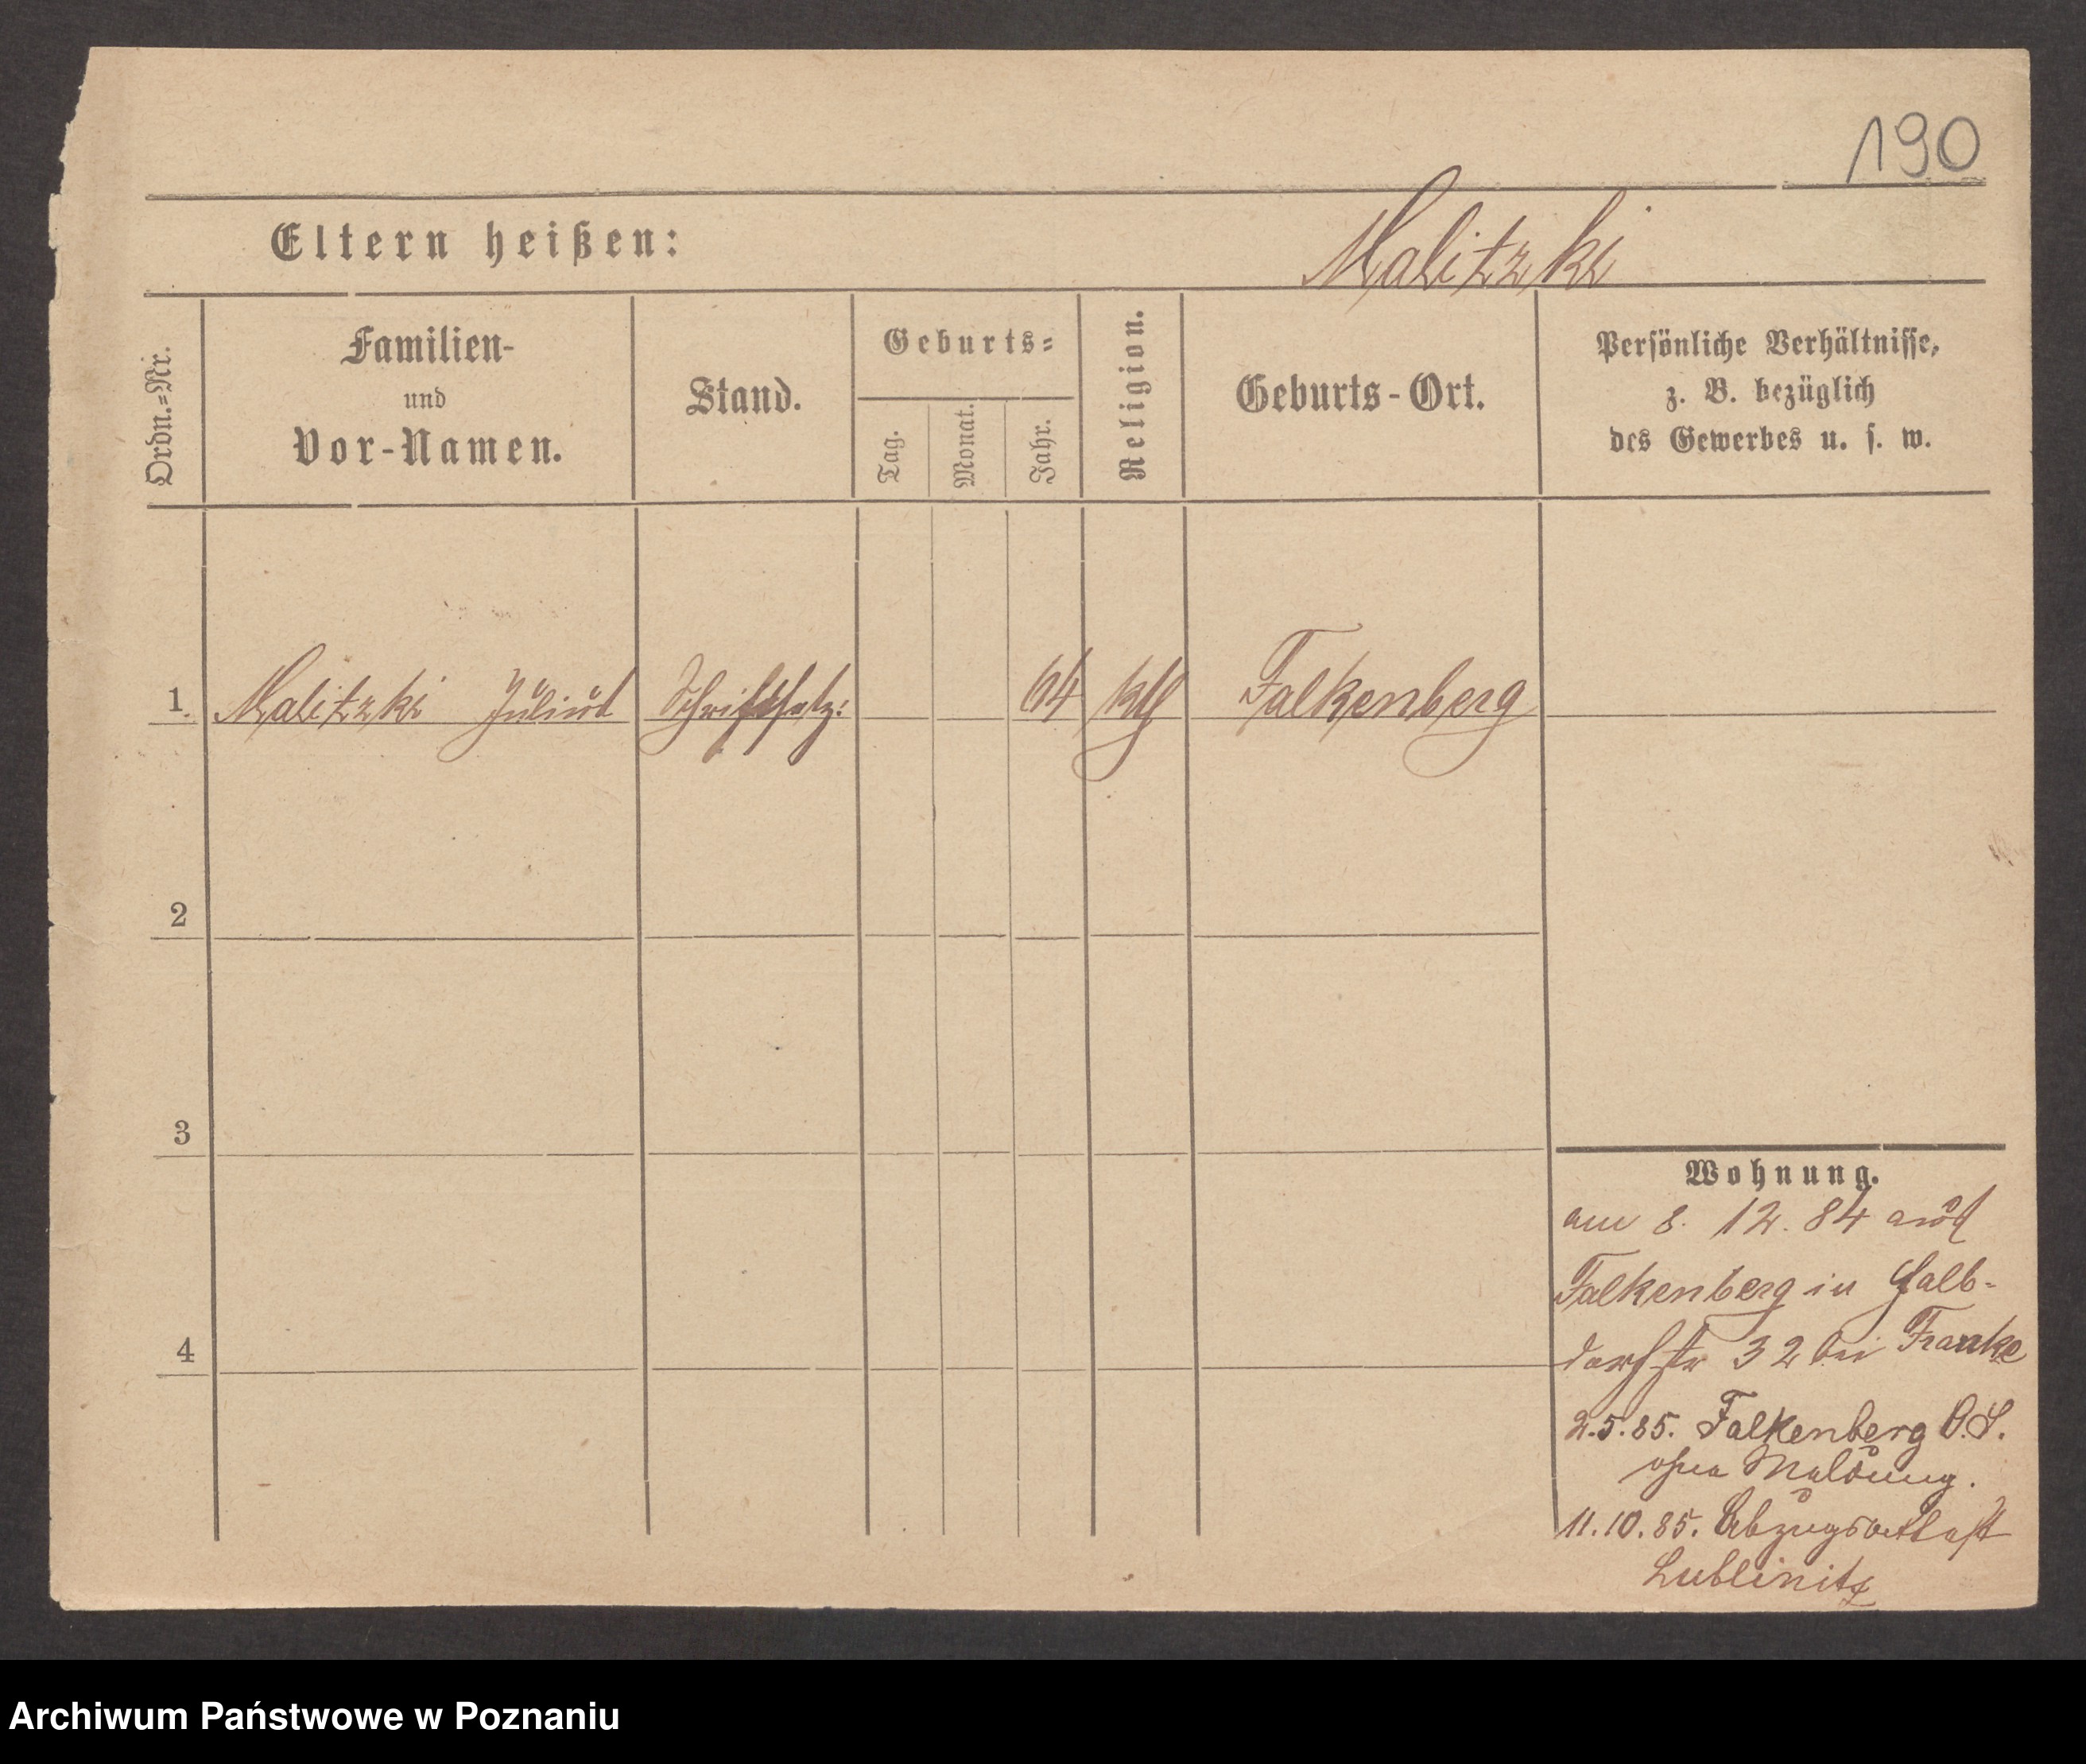 190
Eltern heißen: Malitzki
Ordn.=Nr.
Familien-
und
Vor-Namen.
Stand.
Geburts=
Tag.
Monat.
Jahr.
Religion.
Geburts-Ort.
Persönliche Verhältnisse,
z. B. bezüglich
des Gewerbes u. s. w.
1. Malitzki Julius Schriftsetz: 64 kth Falkenberg
2
3
4
Wohnung.
am 8. 12. 84 aus
Falkenberg in Halb-
dorfstr 32 bei Franke
2.5.85. Falkenberg O.S.
ohne Meldung.
11.10.85. Abzugsattest
Lublinitz
Archiwum Państwowe w Poznaniu